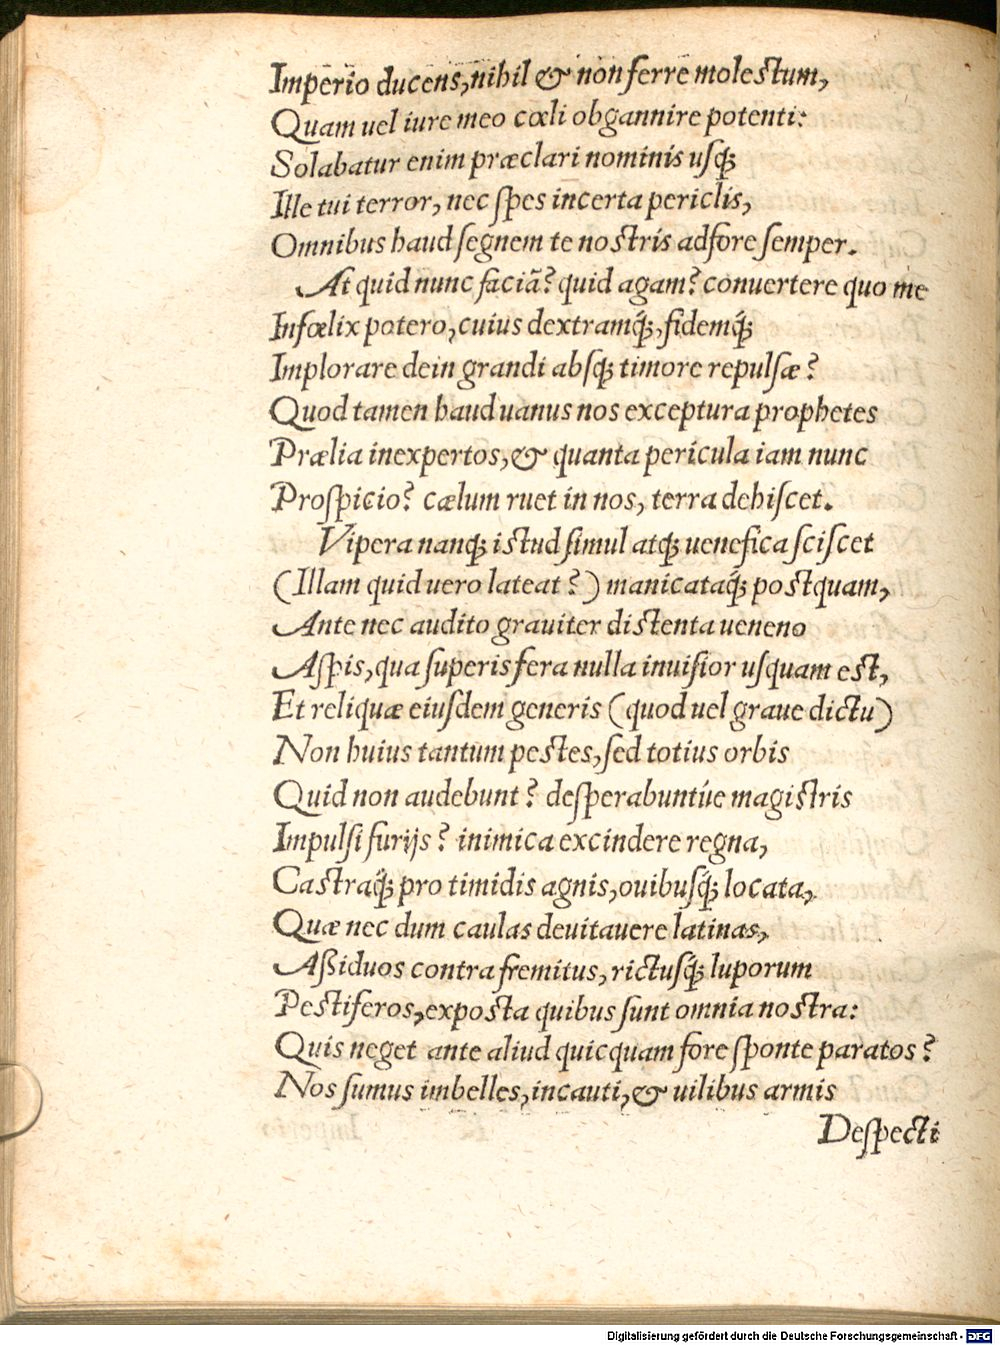 Imperio ducens, nihil & non ferre molestum,
Quam uel iure meo cœli obgannire potenti:
Solabatur enim præclari nominis usq́;
Ille tui terror, nec spes incerta periclis,
Omnibus haud segnem te nostris adfore semper.
At quid nunc faciã? quid agam? conuertere quo me
Infœlix potero, cuius dextramq́;, fidemq́;
Implorare dein grandi absq́; timore repulsæ?
Quod tamen haud uanus nos exceptura prophetes
Prælia inexpertos, & quanta pericula iam nunc
Prospicio? cælum ruet in nos, terra dehiscet.
Vipera nanq́; istud simul atq́; uenefica sciscet
(Illam quid uero lateat?) manicataq́; postquam,
Ante nec audito grauiter distenta ueneno
Aspis, qua superis fera nulla inuisior usquam est,
Et reliquæ eiusdem generis (quod uel graue dictu)
Non huius tantum pestes, sed totius orbis
Quid non audebunt? desperabuntúe magistris
Impulsi furijs? inimica excindere regna,
Castraq́; pro timidis agnis, ouibusq́; locata,
Quæ nec dum caulas deuitauere latinas,
Aßiduos contra fremitus, rictusq́; luporum
Pestiferos, exposta quibus sunt omnia nostra:
Quis neget ante aliud quicquam fore sponte paratos?
Nos sumus imbelles, incauti, & uilibus armis
Despecti
Digitalisierung gefördert durch die Deutsche Forschungsgemeinschaft - DFG